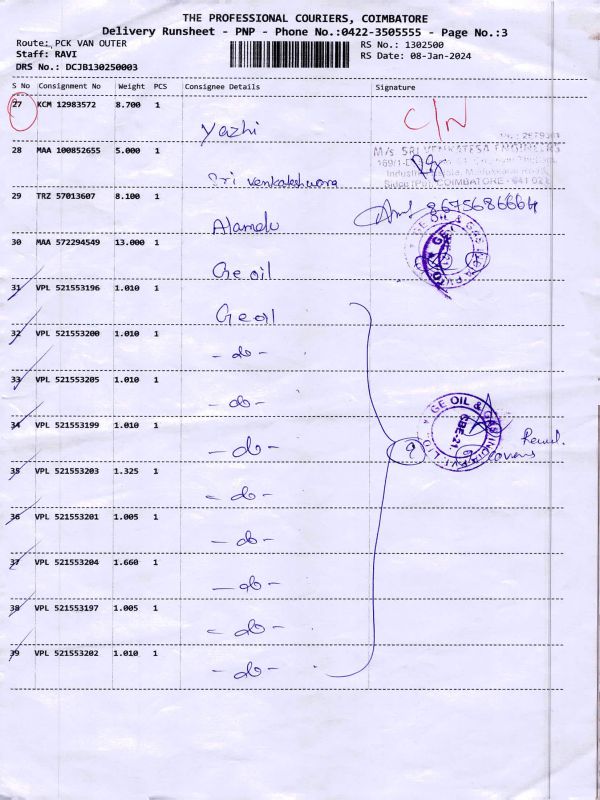 THE PROFESSIONAL COURIERS, COIMBATORE
Delivery Runsheet - PNP - Phone No.:0422-3505555 - Page No.:3
Route: PCK VAN OUTER
Staff: RAVI
DRS No.: DCJB130250003
RS No.: 1302500
RS Date: 08-Jan-2024
S No Consignment No Weight PCS Consignee Details Signature
27 KCM 12983572 8.700 1 Yazhi C/N
28 MAA 100852655 5.000 1 Sri venkateshwara
M/s SRI VENKATESA ENGINEERS
COIMBATORE - 641 021
29 TRZ 57013607 8.100 1 Alamelu 8675686664
30 MAA 572294549 13.000 1 Ge oil
GE OIL & GAS
31 VPL 521553196 1.010 1 Ge oil
32 VPL 521553200 1.010 1 - do -
33 VPL 521553205 1.010 1 - do -
34 VPL 521553199 1.010 1 - do -
9
GE OIL & GAS INDIA PVT. LTD.
CBE-21
covers
35 VPL 521553203 1.325 1 - do -
36 VPL 521553201 1.005 1 - do -
37 VPL 521553204 1.660 1 - do -
38 VPL 521553197 1.005 1 - do -
39 VPL 521553202 1.010 1 - do -